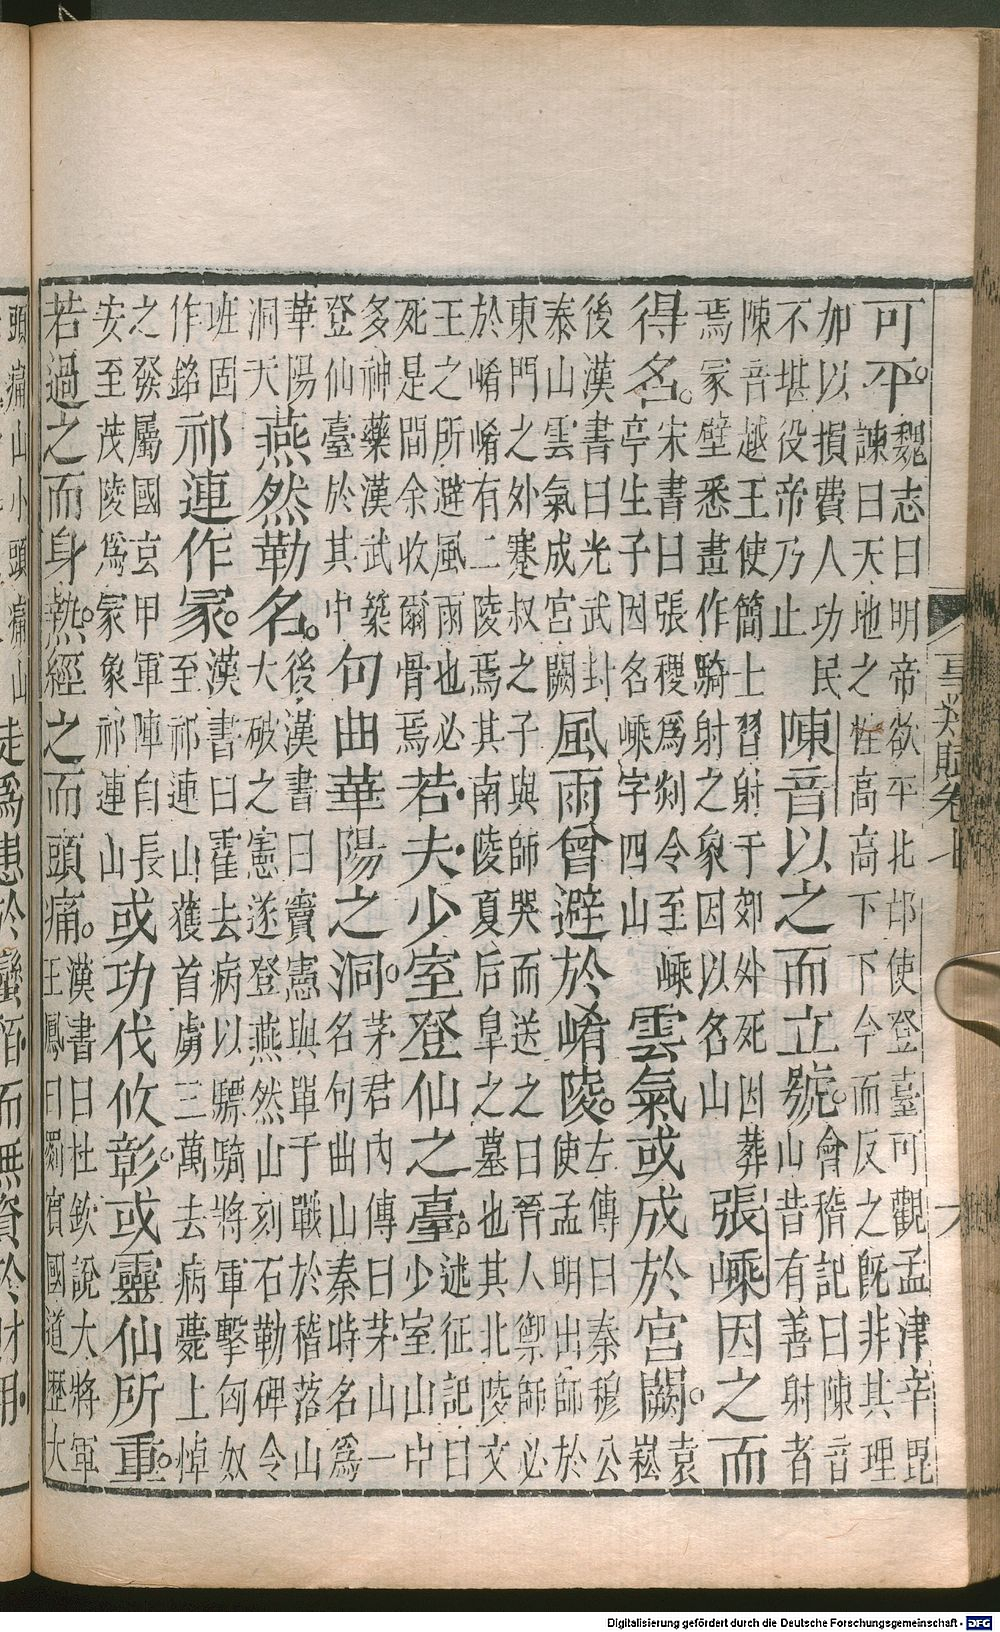 事類賦卷七
六
可平。
魏志曰明帝欲平北邙使登臺可觀孟津辛毘
諫曰天地之性高高下下今而反之既非其理
加以損費人功民
不堪役帝乃止
陳音以之而立號。
會稽記曰陳音
山昔有善射者
陳音越王使簡士習射于郊外死因葬
焉冢壁悉畫作騎射之象因以名山
張嵊因之而
得名。
宋書曰張稷爲剡令至嵊
亭生子因名嵊字四山
雲氣或成於宮闕。
袁
崧
後漢書曰光武封
泰山雲氣成宮闕
風雨曾避於崤陵。
左傳曰秦穆公
使孟明出師於
東門之外蹇叔之子與師哭而送之曰晉人禦師必
於崤崤有二陵焉其南陵夏后皐之墓也其北陵文
王之所避風雨也必
死是間余收爾骨焉
若夫少室登仙之臺。
述征記曰
少室山中
多神藥漢武築
登仙臺於其中
句曲華陽之洞。
茅君內傳曰茅山一
名句曲山秦時名爲
華陽
洞天
燕然勒名。
後漢書曰竇憲與單于戰於稽落山
大破之憲遂登燕然山刻石勒碑令
班固
作銘
祁連作冢。
漢書曰霍去病以驃騎將軍擊匈奴
至祁連山獲首虜三萬去病薨上悼
之發屬國玄甲軍陣自長
安至茂陵爲冢象祁連山
或功伐攸彰。或靈仙所重。
若過之而身熱。經之而頭痛。
漢書曰杜欽說大將軍
王鳳曰罽賓國道歷大
頭痛山小頭痛山
爲患於蠻陌而無資於財用
Digitalisierung gefördert durch die Deutsche Forschungsgemeinschaft - DFG